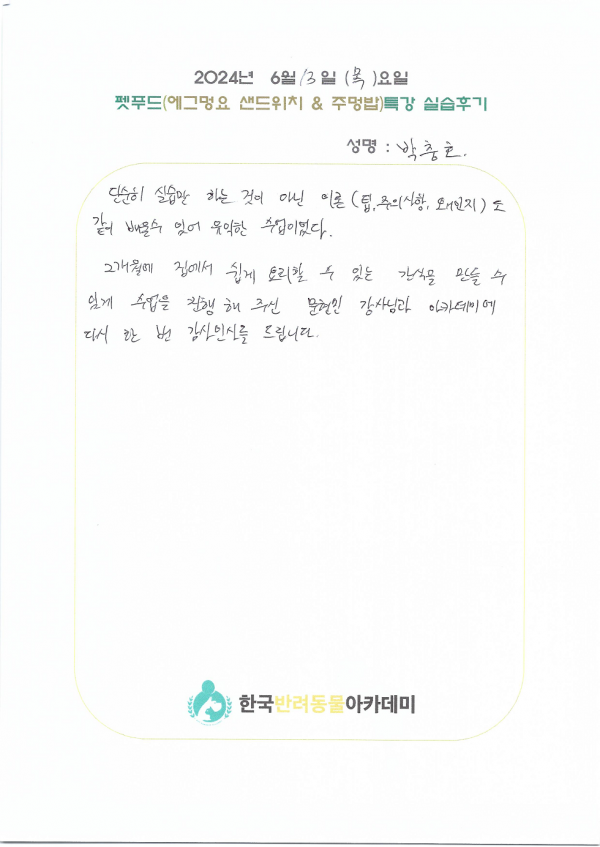 2024년 6월 13일 (목)요일
펫푸드(에그멍요 샌드위치 & 주멍밥)특강 실습후기
성명 : 박충호.
단순히 실습만 하는 것이 아닌 이론(팁, 주의사항, 왜인지)도
같이 배울수 있어 유익한 수업이었다.
2개월에 집에서 쉽게 요리할 수 있는 간식을 만들 수
있게 수업을 진행 해 주신 문현인 강사님과 아카데미에
다시 한 번 감사인사를 드립니다.
한국반려동물아카데미